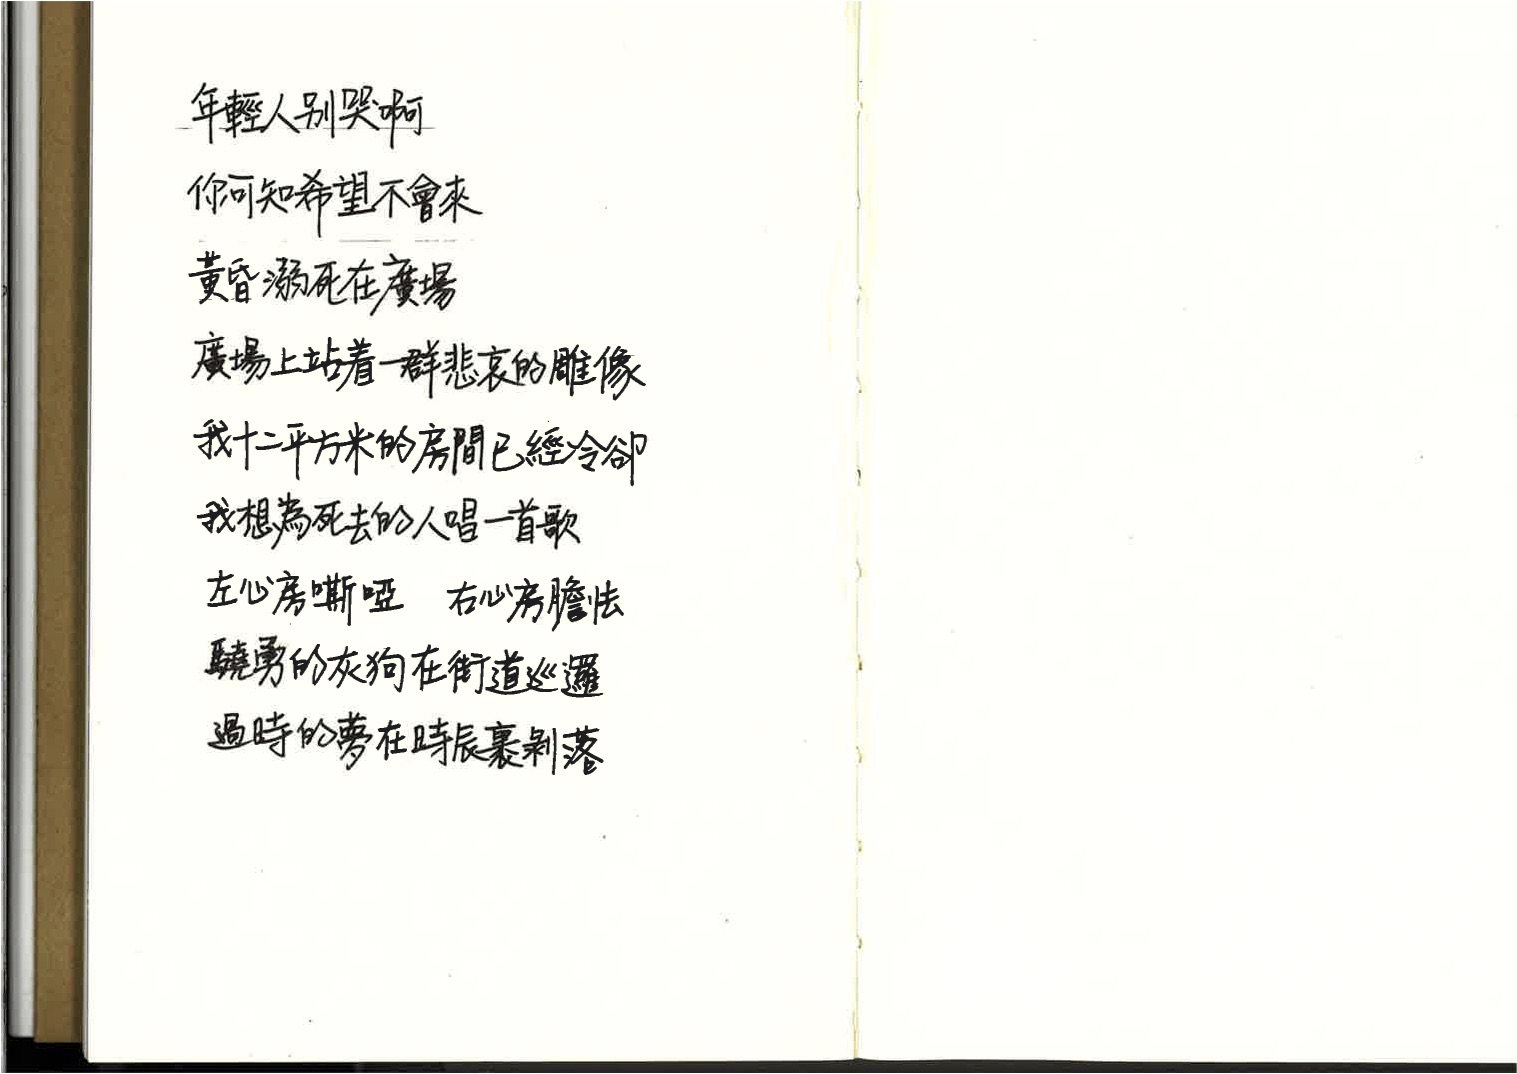 年輕人别哭啊
你可知希望不會來
黃昏溺死在廣場
廣場上站着一群悲哀的雕像
我十二平方米的房間已經冷卻
我想為死去的人唱一首歌
左心房嘶啞　右心房膽怯
驍勇的灰狗在街道巡邏
過時的夢在時辰裏剝落